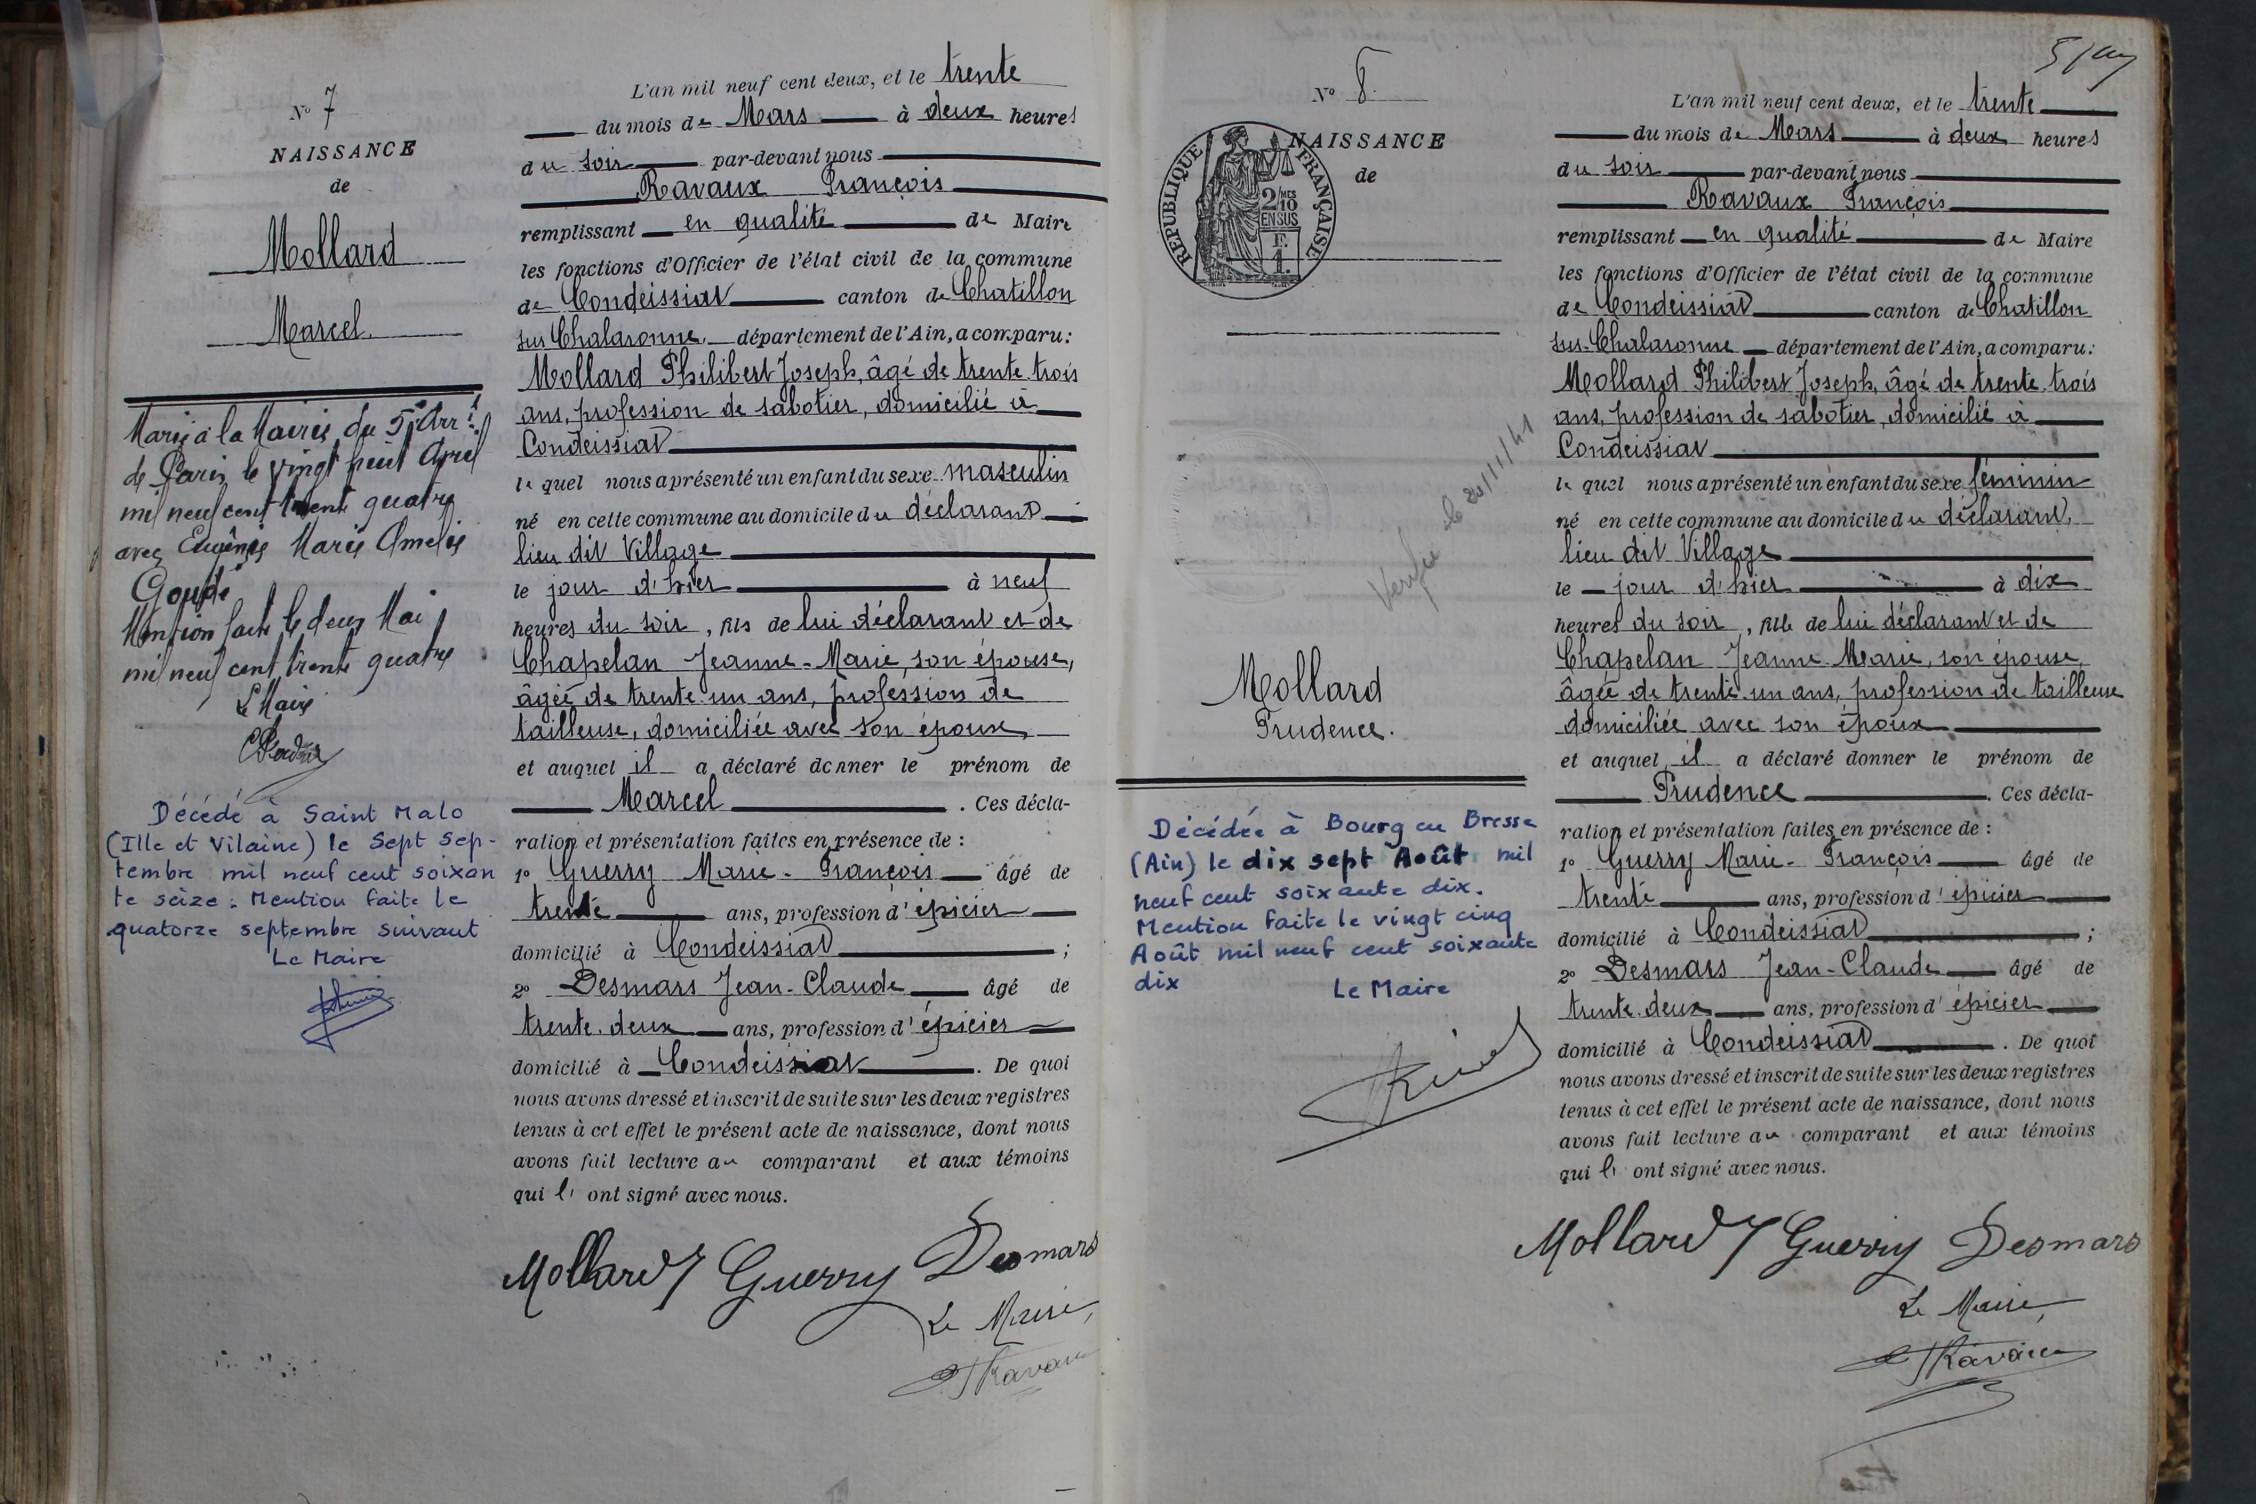 N° 7
NAISSANCE
de
Mollard
Marcel.
Marié à la Mairie du 5e Arrt
de Paris le vingt huit Avril
mil neuf cent trente quatre
avec Eugénie Marie Amélie
Goudé
Mention faite le deux Mai
mil neuf cent trente quatre
Le Maire
Décédé à Saint Malo
(Ille et Vilaine) le Sept Sep-
tembre mil neuf cent soixan
te seize. Mention faite le
quatorze septembre suivant
Le Maire
L'an mil neuf cent deux, et le trente
du mois de Mars à deux heures
du soir par-devant nous
Ravaux François
remplissant en qualité de Maire
les fonctions d'Officier de l'état civil de la commune
de Condeissiat canton de Chatillon
sur Chalaronne, département de l'Ain, a comparu:
Mollard Philibert Joseph, âgé de trente trois
ans, profession de sabotier, domicilié à
Condeissiat
le quel nous a présenté un enfant du sexe masculin
né en cette commune au domicile du déclarant
lieu dit Village
le jour d'hier à neuf
heures du soir, fils de lui déclarant et de
Chapelan Jeanne-Marie, son épouse,
âgée de trente un ans, profession de
tailleuse, domiciliée avec son époux,
et auquel il a déclaré donner le prénom de
Marcel. Ces décla-
ration et présentation faites en présence de :
1° Guerry Marie-François âgé de
trente ans, profession d'épicier
domicilié à Condeissiat ;
2° Desmars Jean-Claude âgé de
trente deux ans, profession d'épicier
domicilié à Condeissiat. De quoi
nous avons dressé et inscrit de suite sur les deux registres
tenus à cet effet le présent acte de naissance, dont nous
avons fait lecture au comparant et aux témoins
qui l' ont signé avec nous.
Mollard J Guerry Desmars
Le Maire,
F Ravaux
N° 8.
NAISSANCE
de
RÉPUBLIQUE FRANÇAISE
2/10MES
EN SUS
F.
1.
Vérifié le 20/11/41
Mollard
Prudence.
Décédée à Bourg en Bresse
(Ain) le dix sept Août mil
neuf cent soixante dix.
Mention faite le vingt cinq
Août mil neuf cent soixante
dix
Le Maire
L'an mil neuf cent deux, et le trente
du mois de Mars à deux heures
du soir par-devant nous
Ravaux François
remplissant en qualité de Maire
les fonctions d'Officier de l'état civil de la commune
de Condeissiat canton de Chatillon
sur-Chalaronne département de l'Ain, a comparu:
Mollard Philibert Joseph, âgé de trente trois
ans, profession de sabotier, domicilié à
Condeissiat
le quel nous a présenté un enfant du sexe féminin
né en cette commune au domicile du déclarant,
lieu dit Village
le jour d'hier à dix
heures du soir, fille de lui déclarant et de
Chapelan Jeanne Marie, son épouse,
âgée de trente un ans, profession de tailleuse
domiciliée avec son époux
et auquel il a déclaré donner le prénom de
Prudence. Ces décla-
ration et présentation faites en présence de :
1° Guerry Marie-François âgé de
trente ans, profession d'épicier
domicilié à Condeissiat ;
2° Desmars Jean-Claude âgé de
trente deux ans, profession d'épicier
domicilié à Condeissiat. De quoi
nous avons dressé et inscrit de suite sur les deux registres
tenus à cet effet le présent acte de naissance, dont nous
avons fait lecture au comparant et aux témoins
qui l' ont signé avec nous.
Mollard J Guerry Desmars
Le Maire,
F Ravaux